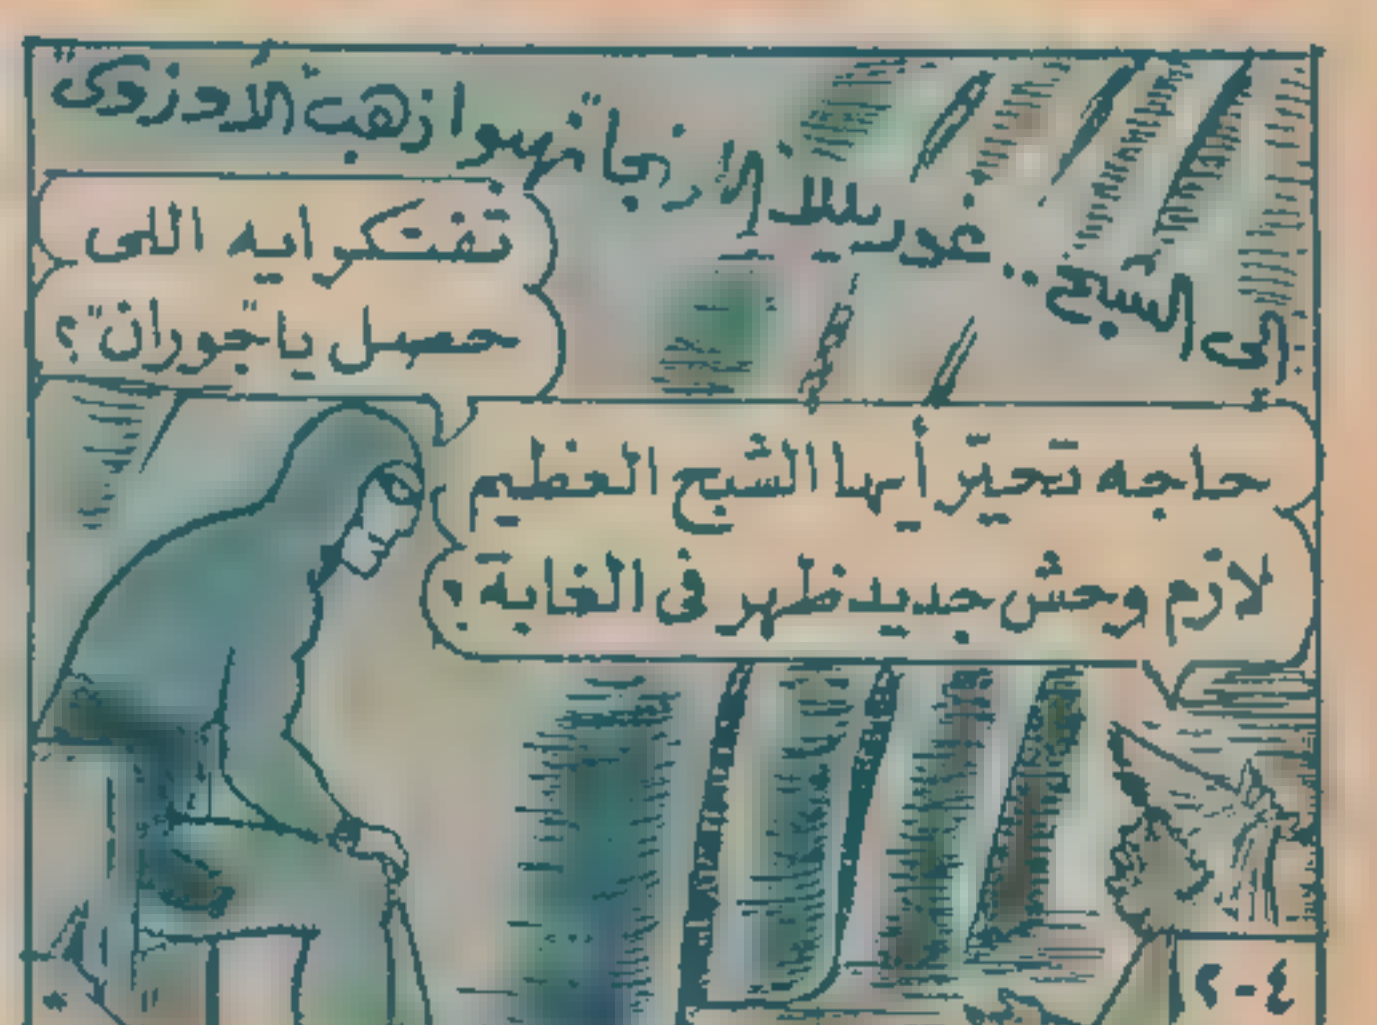 إلى الشبح.. غوريللا الأرنجاتهوا زهب الأورزوى"
تفتكر ايه اللى
حصل يا "جوران"؟
حاجه تحيّر أيها الشبح العظيم
لازم وحش جديد ظهر فى الغابة؟
٤-٢